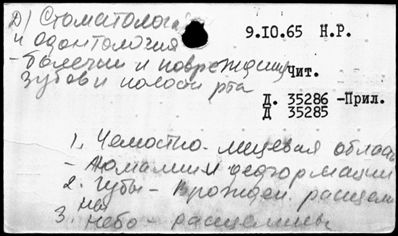 Д) Стоматология
и одонтология
- болезни и повреждения
зубов и полости рта
9.IO.65 Н.Р.
Чит.
Д. 35286 -Прил.
Д 35285
1. Челюстно-лицевая област
- Аномалии и деформации
2. Губы - врожден. расщели
на
3. Небо - расщелины